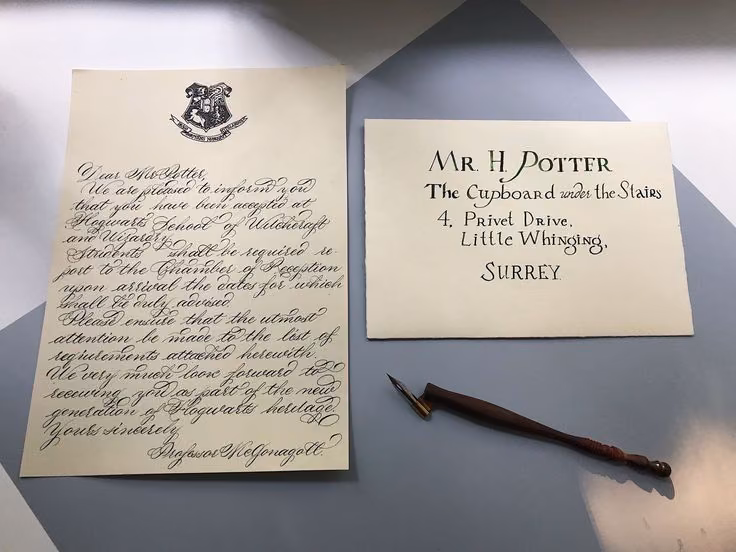 Dear Mr Potter,
We are pleased to inform you
that you have been accepted at
Hogwarts School of Witchcraft
and Wizardry.
Students shall be required re-
port to the Chamber of Reception
upon arrival the dates for which
shall be duly advised
Please ensure that the utmost
attention be made to the list of
requirements attached herewith.
We very much look forward to
receiving you as part of the new
generation of Hogwarts heritage.
Yours sincerely
Professor McGonagall.
MR. H. POTTER
The Cupboard under the Stairs
4, Privet Drive,
Little Whinging,
SURREY.